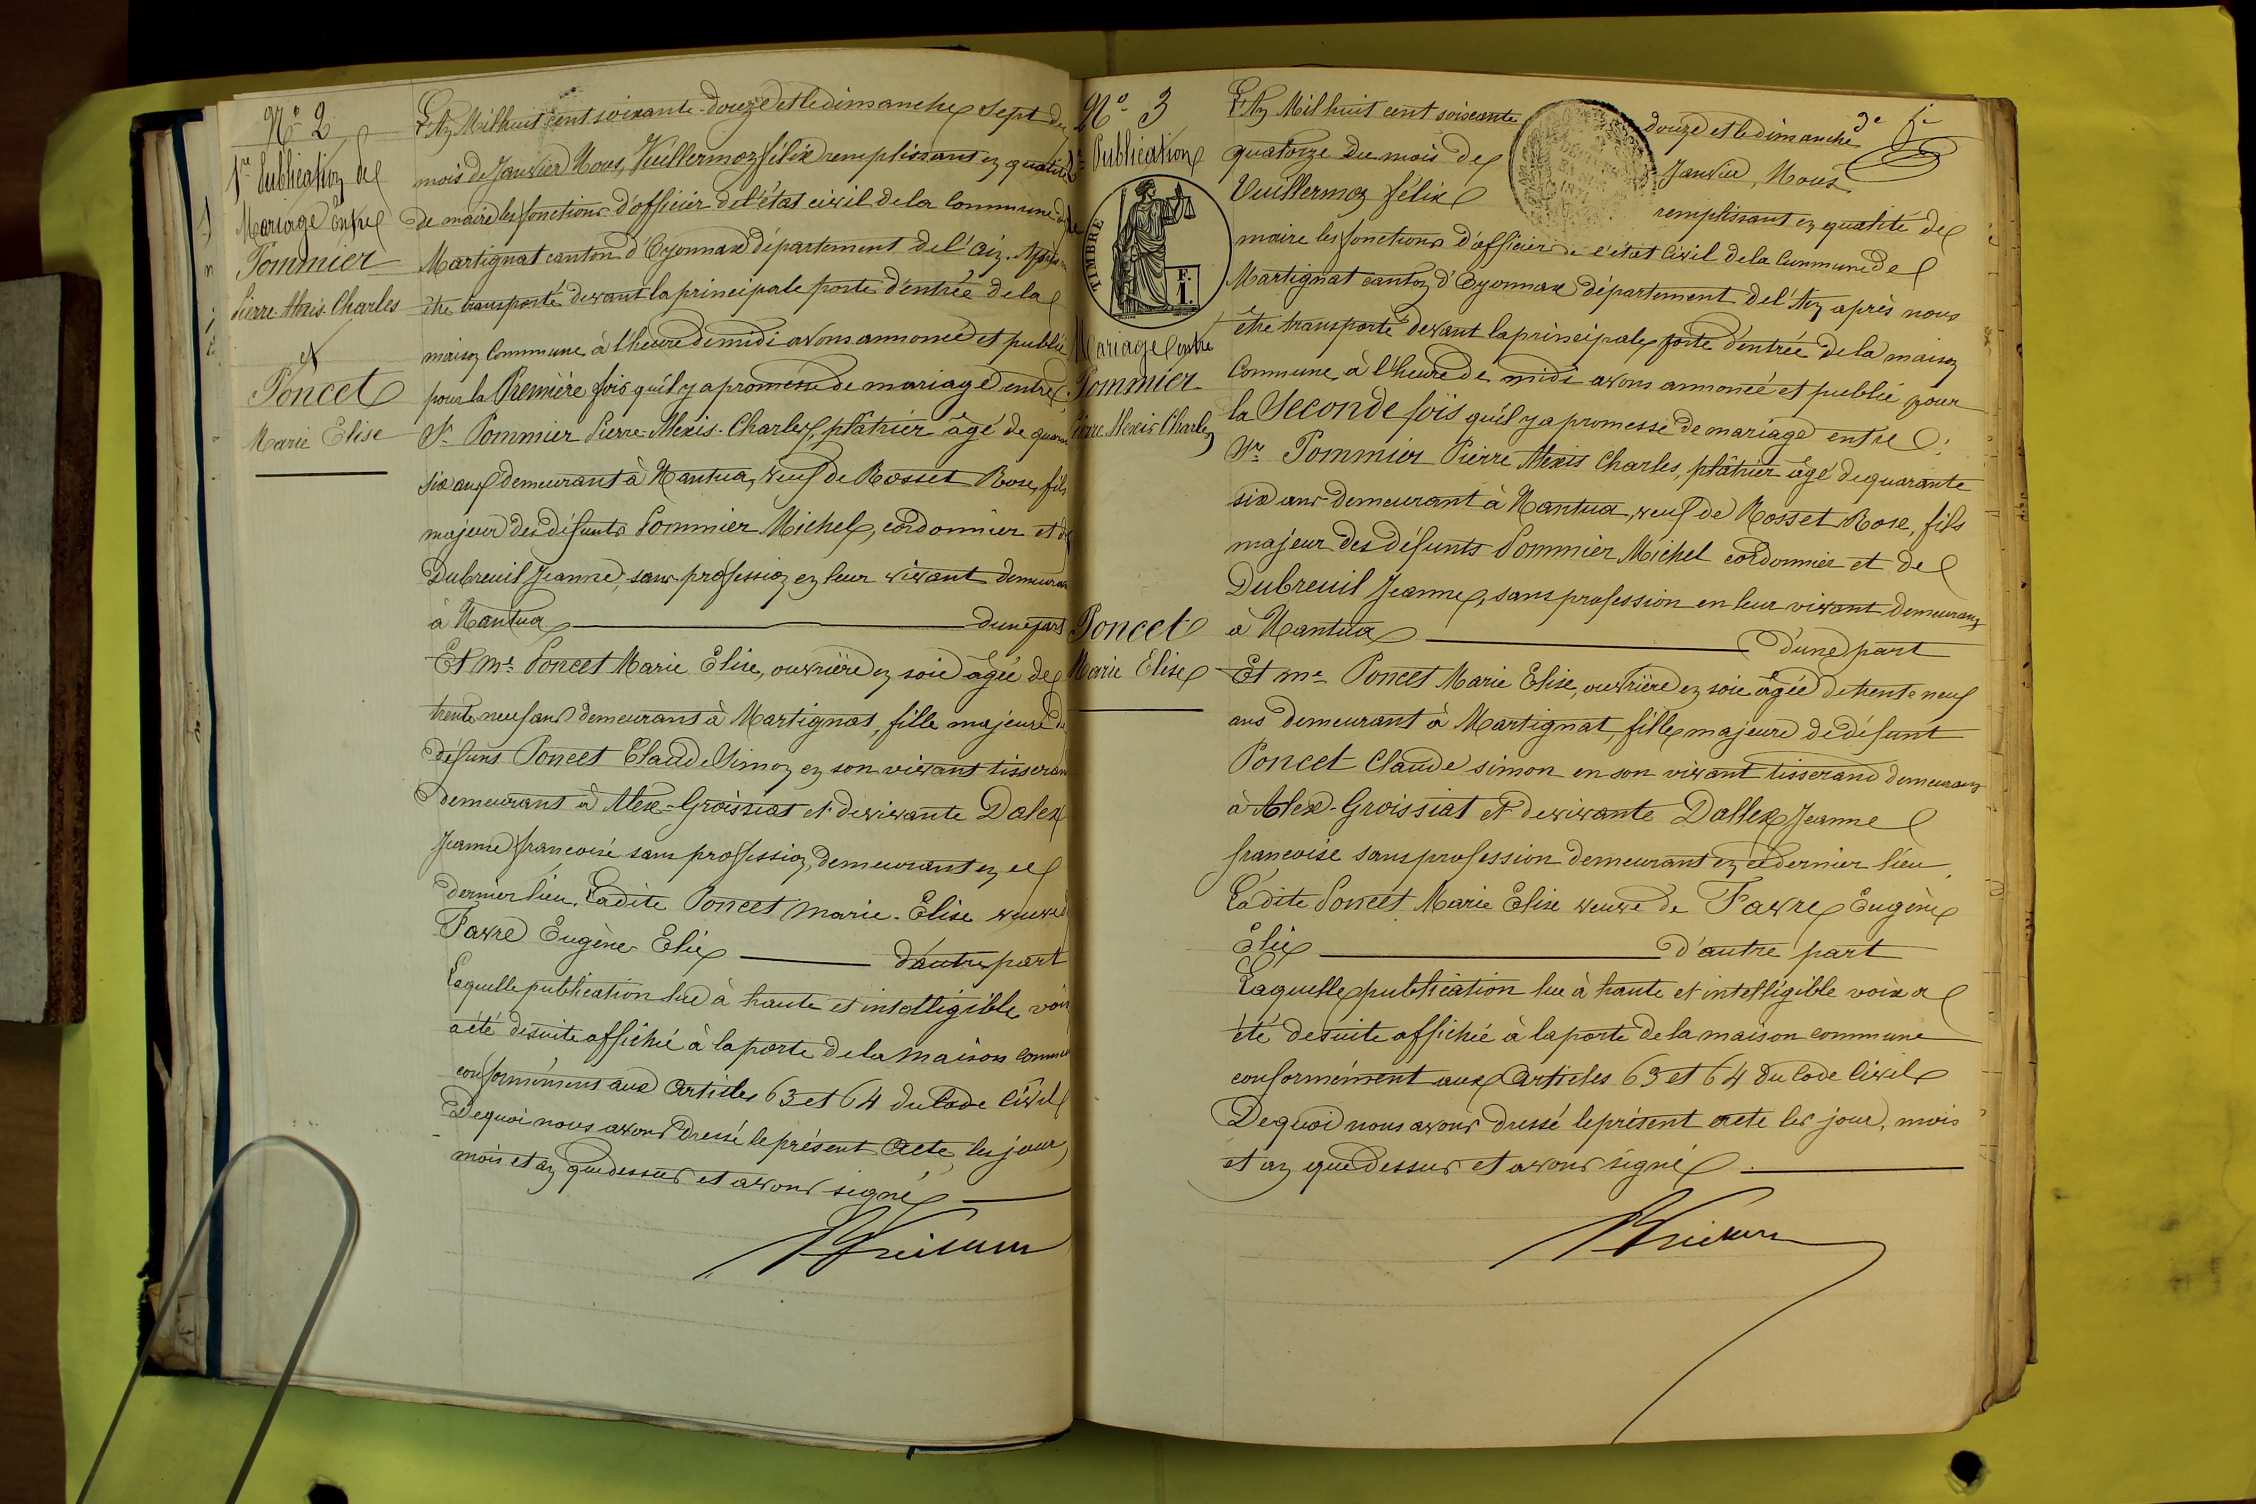 N° 2
1re Publication de
Mariage entre
Pommier
Pierre Alexis Charles
et
Poncet
Marie Elise
L'An Mil huit cent soixante-douze et le dimanche Sept du
mois de Janvier Nous, Vuillermoz félix remplissant en qualité
de maire les fonctions d'officier de l'état civil de la Commune de
Martignat canton d'Oyonnax département de l'Ain. Après nous
être transporté devant la principale porte d'entrée de la
maison Commune à l'heure de midi avons annoncé et publié
pour la Première fois qu'il y a promesse de mariage entre
Sr Pommier Pierre-Alexis-Charles, plâtrier âgé de quarante
six ans demeurant à Nantua, veuf de Rosset Rose, fils
majeur des défunts Pommier Michel, cordonnier et de
Dubreuil Jeanne, sans profession en leur vivant demeurant
à Nantua d'une part
Et me Poncet Marie Elise, ouvrière en soie âgée de
trente neuf ans demeurant à Martignat, fille majeure de
défunt Poncet Claude Simon en son vivant tisserand
demeurant à Alex-Groissiat et de vivante Dalex
Jeanne françoise sans profession, demeurant en ce
dernier lieu. Ladite Poncet Marie-Elise veuve de
Favre Eugène Elie d'autre part
Laquelle publication lue à haute et intelligible voix
a été de suite affiché à la porte de la maison commune
conformément aux Articles 63 et 64 du Code Civil
De quoi nous avons dressé le présent Acte, les jour,
mois et an que dessus et avons signé
N° 3
2e Publication
de
TIMBRE
F.
1.
Mariage entre
Pommier
Pierre Alexis Charles
Poncet
Marie Elise
L'An Mil huit cent soixante douze et le dimanche
quatorze du mois de Janvier, Nous
Vuillermoz félix remplissant en qualité de
maire les fonctions d'officier de l'état Civil de la Commune de
Martignat canton d'Oyonnax département de l'Ain après nous
être transporté devant la principale porte d'entrée de la maison
Commune, à l'heure de midi avons annoncé et publié pour
la Seconde fois qu'il y a promesse de mariage entre
Mr Pommier Pierre Alexis Charles, plâtrier âgé de quarante
six ans demeurant à Nantua, veuf de Rosset Rose, fils
majeur des défunts Pommier Michel cordonnier et de
Dubreuil Jeanne, sans profession en leur vivant demeurant
à Nantua d'une part
Et me Poncet Marie Elise, ouvrière en soie âgée de trente neuf
ans demeurant à Martignat, fille majeure de défunt
Poncet Claude simon en son vivant tisserand demeurant
à Alex-Groissiat et de vivante Dallex Jeanne
françoise sans profession demeurant en ce dernier lieu.
Ladite Poncet Marie Elise veuve de Favre Eugène
Elie d'autre part
Laquelle publication lue à haute et intelligible voix a
été de suite affichée à la porte de la maison commune
conformément aux Articles 63 et 64 du Code Civil
De quoi nous avons dressé le présent acte les jour, mois
et an que dessus et avons signé